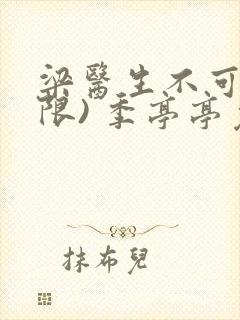 梁醫生不可
限) 季亭亭
抹布兒